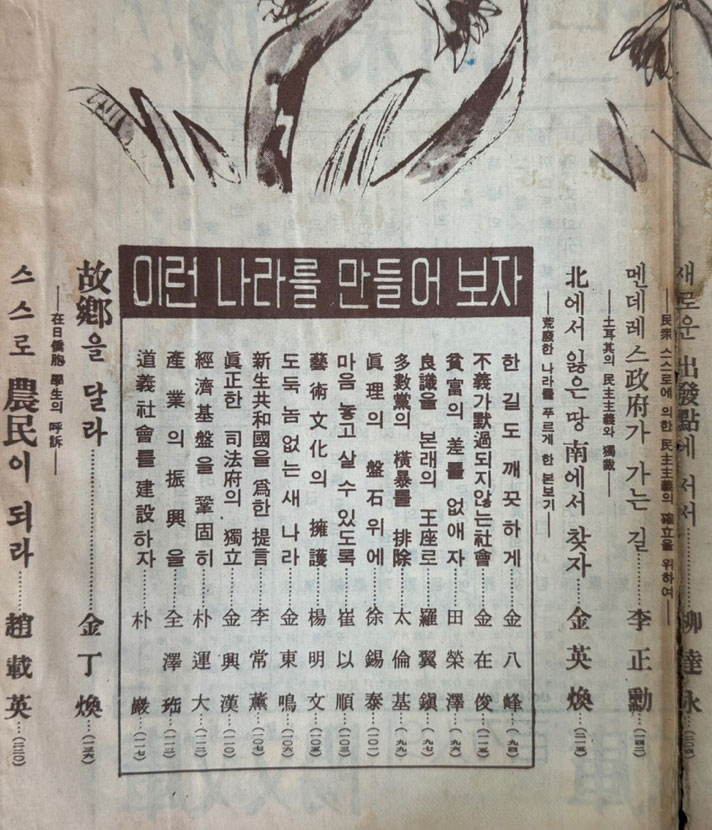 새로운 出發點에 서서……柳達永……(二○四)
——民衆 스스로에 의한 民主主義의 確立을 위하여——
멘데레스政府가 가는 길……李正勳……(一四二)
——土耳其의 民主主義와 獨裁——
北에서 잃은 땅 南에서 찾자……金英煥……(二一五)
——荒廢한 나라를 푸르게 한 본보기——
이런 나라를 만들어 보자
한 길도 깨끗하게……金八峰……(九四)
不義가 默過되지않는 社會……金在俊……(二一五)
貧富의 差를 없애자……田榮澤……(九六)
良識을 본래의 王座로……羅翼鎭……(九七)
多數黨의 橫暴를 排除……太倫基……(九九)
眞理의 盤石위에……徐錫泰……(一○一)
마음 놓고 살 수 있도록……崔以順……(一○三)
藝術文化의 擁護……楊明文……(一○五)
도둑 놈 없는 새 나라……金東鳴……(一○六)
新生共和國을 爲한 提言……李常薰……(一○七)
眞正한 司法府의 獨立……金興漢……(一一○)
經濟基盤을 鞏固히……朴運大……(一一二)
產業의 振興을……全澤珤……(一一三)
道義社會를 建設하자……朴巖……(一一七)
故鄕을 달라……金丁煥……(二二六)
——在日僑胞 學生의 呼訴——
스스로 農民이 되라……趙載英……(二二○)